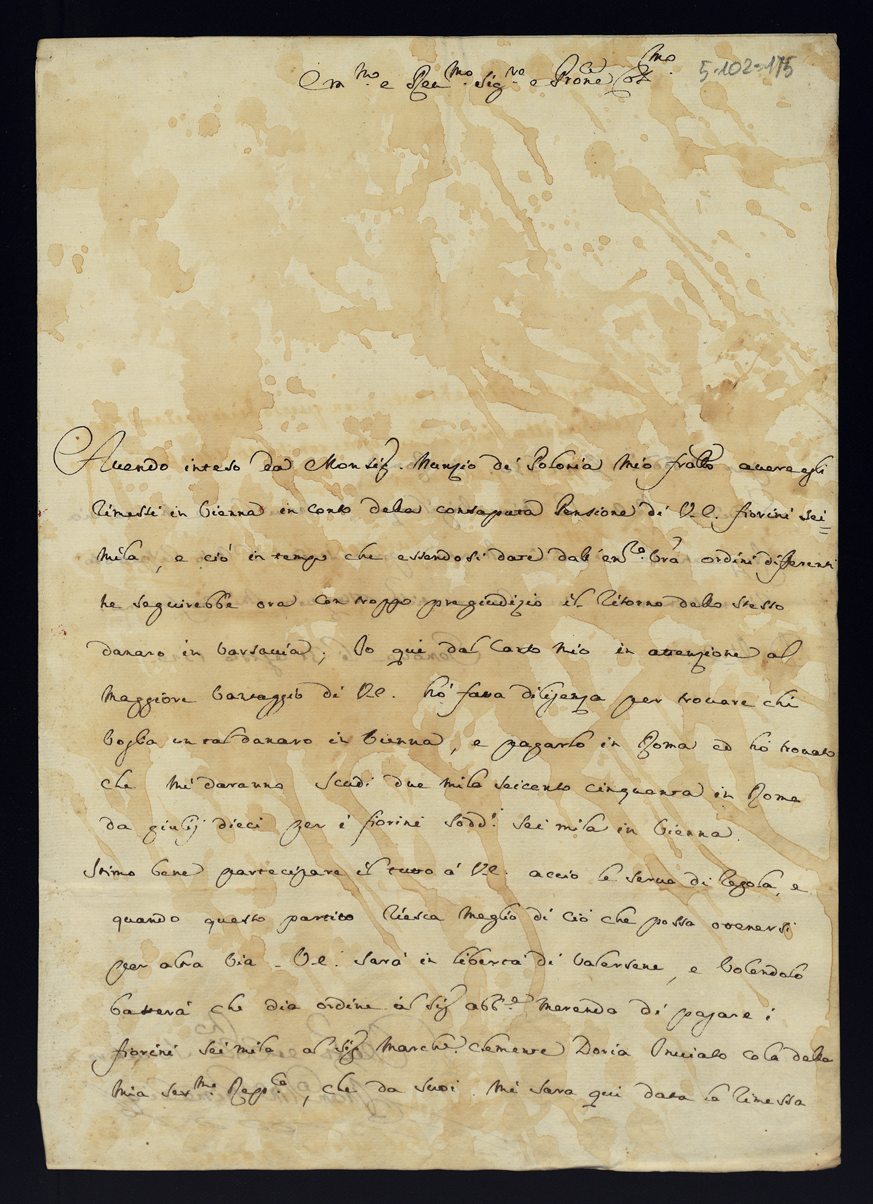 Em.mo e Reu.mo Sig.re e P̃rone Col.mo
5-102-175
Auendo inteso da Monsig.r Nunzio di Polonia mio fratello auere egli
rimessi in Vienna in conto della consaputa Pensione di V.E. fiorini sei=
mila, e ciò in tempo che essendosi date dall'em.za v̄ra ordini differenti
ne seguirebbe ora con troppo pregiudizio il ritorno dello stesso
danaro in Varsauia; Io qui dal canto mio in attenzione al
maggiore vantaggio di V.E. hò fatta diligenza per trouare chi
voglia un tal danaro in Vienna, e pagarlo in Roma ed hò trouato
che mi daranno scudi due mila seicento cinquanta in Roma
da giulij dieci per i fiorini sodd.i sei mila in Vienna.
Stimo bene partecipare il tutto á V.E. acciò le serua di regola, e
quando questo partito riesca meglio di ciò che possa ottenersi
per altra via - V.E. sarà in libertà di valersene, e volendolo
basterà che dia ordine al Sig.r abb.e Merenda di pagare i
fiorini sei mila al Sig.r March.e Clemente Doria Inuiato colà della
mia Ser.ma Repp.ca, che da suoi mi sara qui data la rimessa